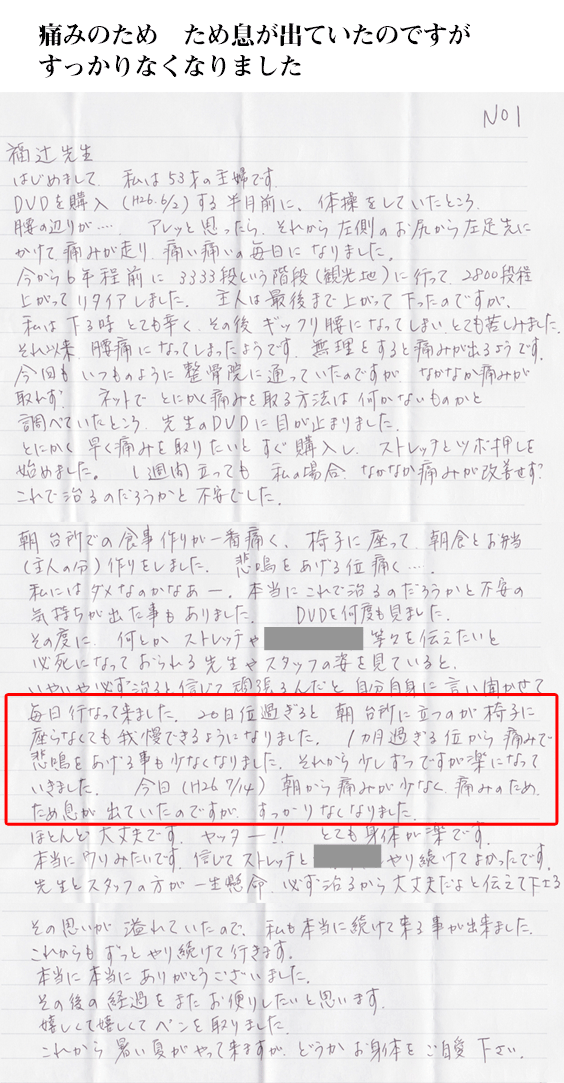 痛みのため　ため息が出ていたのですが
すっかりなくなりました
NO1
福辻先生
はじめまして、私は53才の主婦です。
DVDを購入(H26.6/2)する半月前に、体操をしていたところ、
腰の辺りが……　アレッと思ったら、それから左側のお尻から左足先に
かけて痛みが走り、痛い痛いの毎日になりました。
今から6年程前に3333段という階段(観光地)に行って、2800段程
上がってリタイアしました。　主人は最後まで上がって下ったのですが、
私は下る時とても辛く、その後ギックリ腰になってしまいとても苦しみました。
それ以来、腰痛になってしまったようです。無理をすると痛みが出るようです。
今回もいつものように整骨院に通っていたのですが、なかなか痛みが
取れず、ネットでとにかく痛みを取る方法は何かないものかと
調べていたところ、先生のDVDに目が止まりました。
とにかく早く痛みを取りたいとすぐ購入し、ストレッチとツボ押しを
始めました。　1週間立っても私の場合、なかなか痛みが改善せず、
これで治るのだろうかと不安でした。
朝台所での食事作りが一番痛く、椅子に座って、朝食とお弁当
(主人の分)作りをしました。　悲鳴をあげる位痛く…。
私にはダメなのかなあー。本当にこれで治るのだろうかと不安の
気持ちが出た事もありました。　DVDを何度も見ました。
その度に、何とかストレッチや　等々を伝えたいと
必死になっておられる先生やスタッフの姿を見ていると、
いやいや必ず治ると信じて頑張るんだと自分自身に言い聞かせて
毎日行なって来ました。20日位過ぎると朝台所に立つのが椅子に
座らなくても我慢できるようになりました。　1カ月過ぎる位から痛みで
悲鳴をあげる事も少なくなりました。それから少しずつですが楽になって
いきました。　今日(H26 7/14)朝から痛みが少なく、痛みのため、
ため息が出ていたのですが、すっかりなくなりました。
ほとんど大丈夫です。ヤッター!!　とても身体が楽です。
本当にウソみたいです。信じてストレッチと　やり続けてよかったです。
先生とスタッフの方が一生懸命、必ず治るから大丈夫だよと伝えて下さる
その思いが溢れていたので、私も本当に続けて来る事が出来ました。
これからもずっとやり続けて行きます。
本当に本当にありがとうございました。
その後の経過をまたお便りしたいと思います。
嬉しくて嬉しくてペンを取りました。
これから暑い夏がやって来ますが、どうかお身体をご自愛下さい。